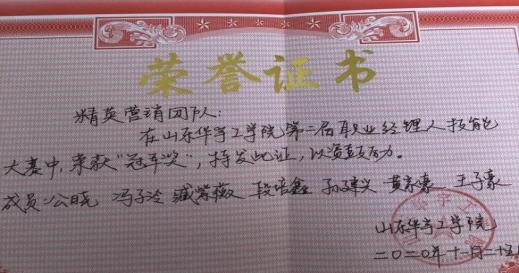 荣誉证书
精英营销团队：
在山东华宇工学院第二届职业经理人技能
大赛中，荣获“冠军奖”，特发此证，以资鼓励。
成员：公晓 冯子泠 臧紫薇 段培鑫 孙建义 黄家豪 王子豪
山东华宇工学院
二〇二〇年十一月二十五